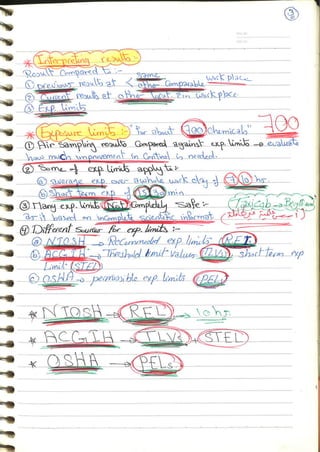 3
* Interpreting results :
Result Compared to :-
① previous results at < same
other comparable work place
② Current results at other locat in workplace
③ Exp limits
* Exposure limits :- "for about 700 chemicals" 700
① Air Sampling results Compared against exp. limits → evaluate
how much improvement in Control is needed.
② Some of exp. limits apply to :-
ⓐ average exp. over a whole work day of 7, 10 hr.
ⓑ Short term exp of 15, 30 min
③ Many exp. limits Not Completely Safe :-
as it based on incomplete scientific informat
④ Different Source for exp. limits :-
ⓐ NIOSH → Recommended exp. limits REL
ⓑ ACGIH → Threshold limit values TLVs, short term exp
Limit STEL
ⓒ OSHA → permissible exp. limits PEL
* NIOSH → REL → 10 hr
* ACGIH → TLVs + STEL
* OSHA → PELs